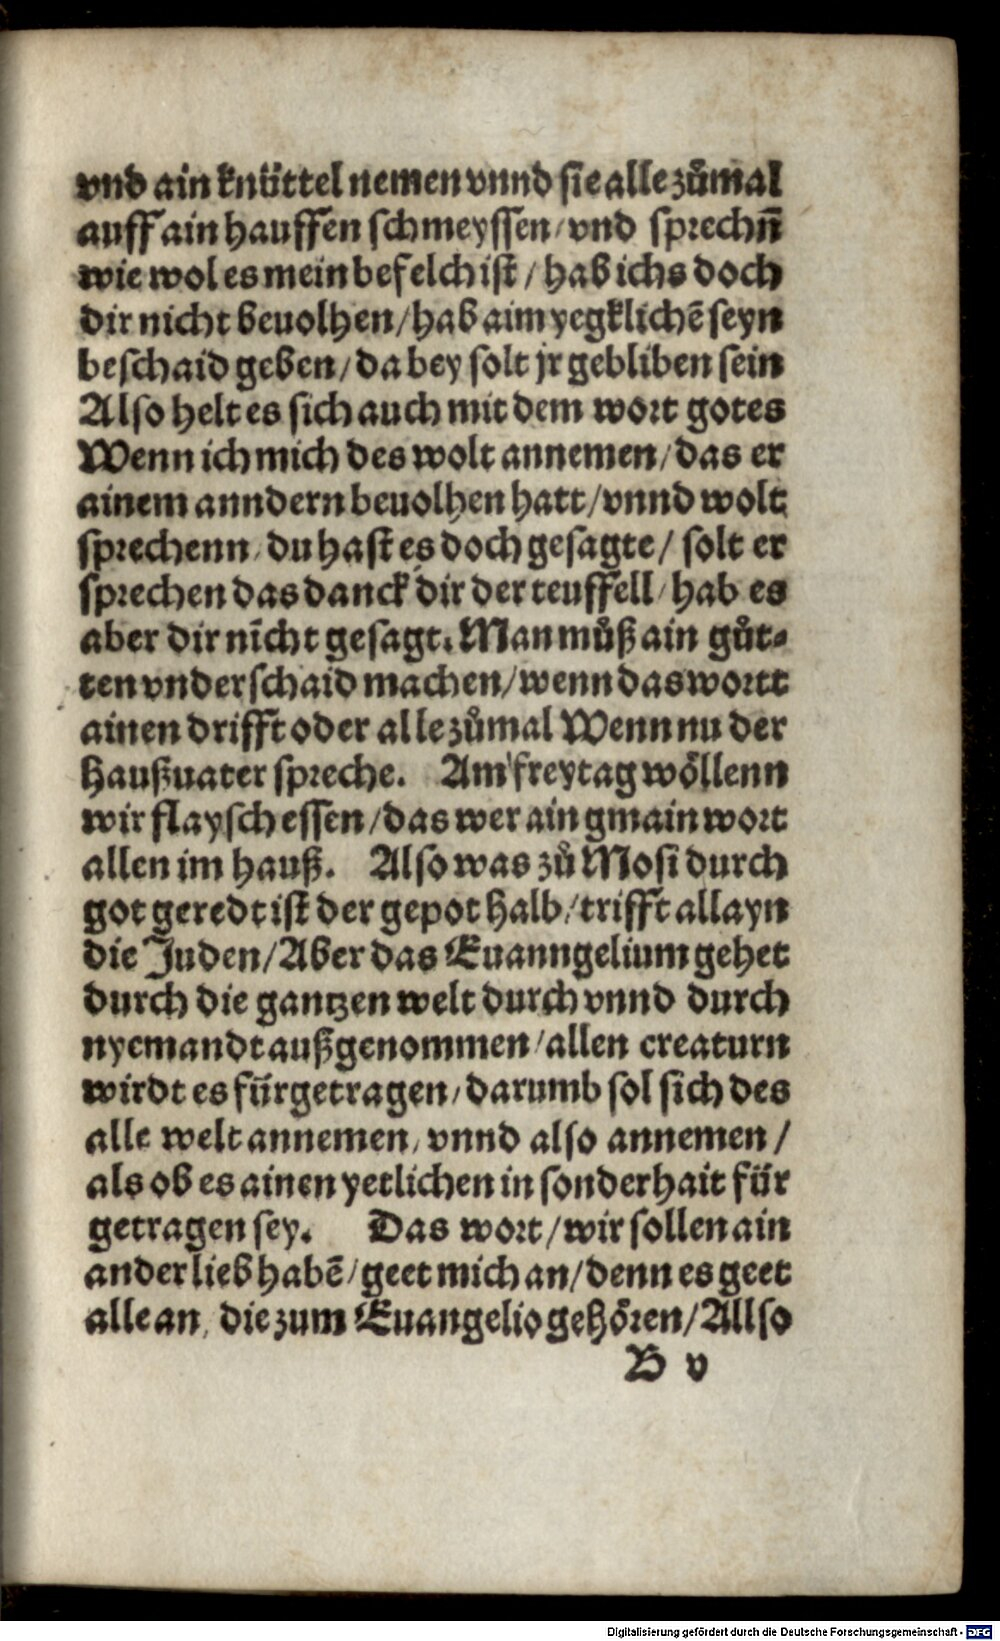 vnd ain knüttel nemen vnnd sie alle zůmal
auff ain hauffen schmeyssen / vnd sprechn̄
wie wol es mein befelch ist / hab ichs doch
dir nicht beuolhen / hab aim yegklichē seyn
beschaid geben / da bey solt jr gebliben sein
Also helt es sich auch mit dem wort gotes
Wenn ich mich des wolt annemen / das er
ainem anndern beuolhen hatt / vnnd wolt
sprechenn / du hast es doch gesagte / solt er
sprechen das danck dir der teuffell / hab es
aber dir nīcht gesagt. Man můß ain gůt⸗
ten vnderschaid machen / wenn das wortt
ainen drifft oder alle zůmal Wenn nu der
haußuater spreche. Am freytag wöllenn
wir flaysch essen / das wer ain gmain wort
allen im hauß. Also was zů Mosi durch
got geredt ist der gepot halb / trifft allayn
die Juden / Aber das Euanngelium gehet
durch die gantzen welt durch vnnd durch
nyemandt außgenommen / allen creaturn
wirdt es fürgetragen / darumb sol sich des
alle welt annemen / vnnd also annemen /
als ob es ainen yetlichen in sonderhait für
getragen sey. Das wort / wir sollen ain
ander lieb habē / geet mich an / denn es geet
alle an / die zum Euangelio gehören / Allso
B v
Digitalisierung gefördert durch die Deutsche Forschungsgemeinschaft - DFG